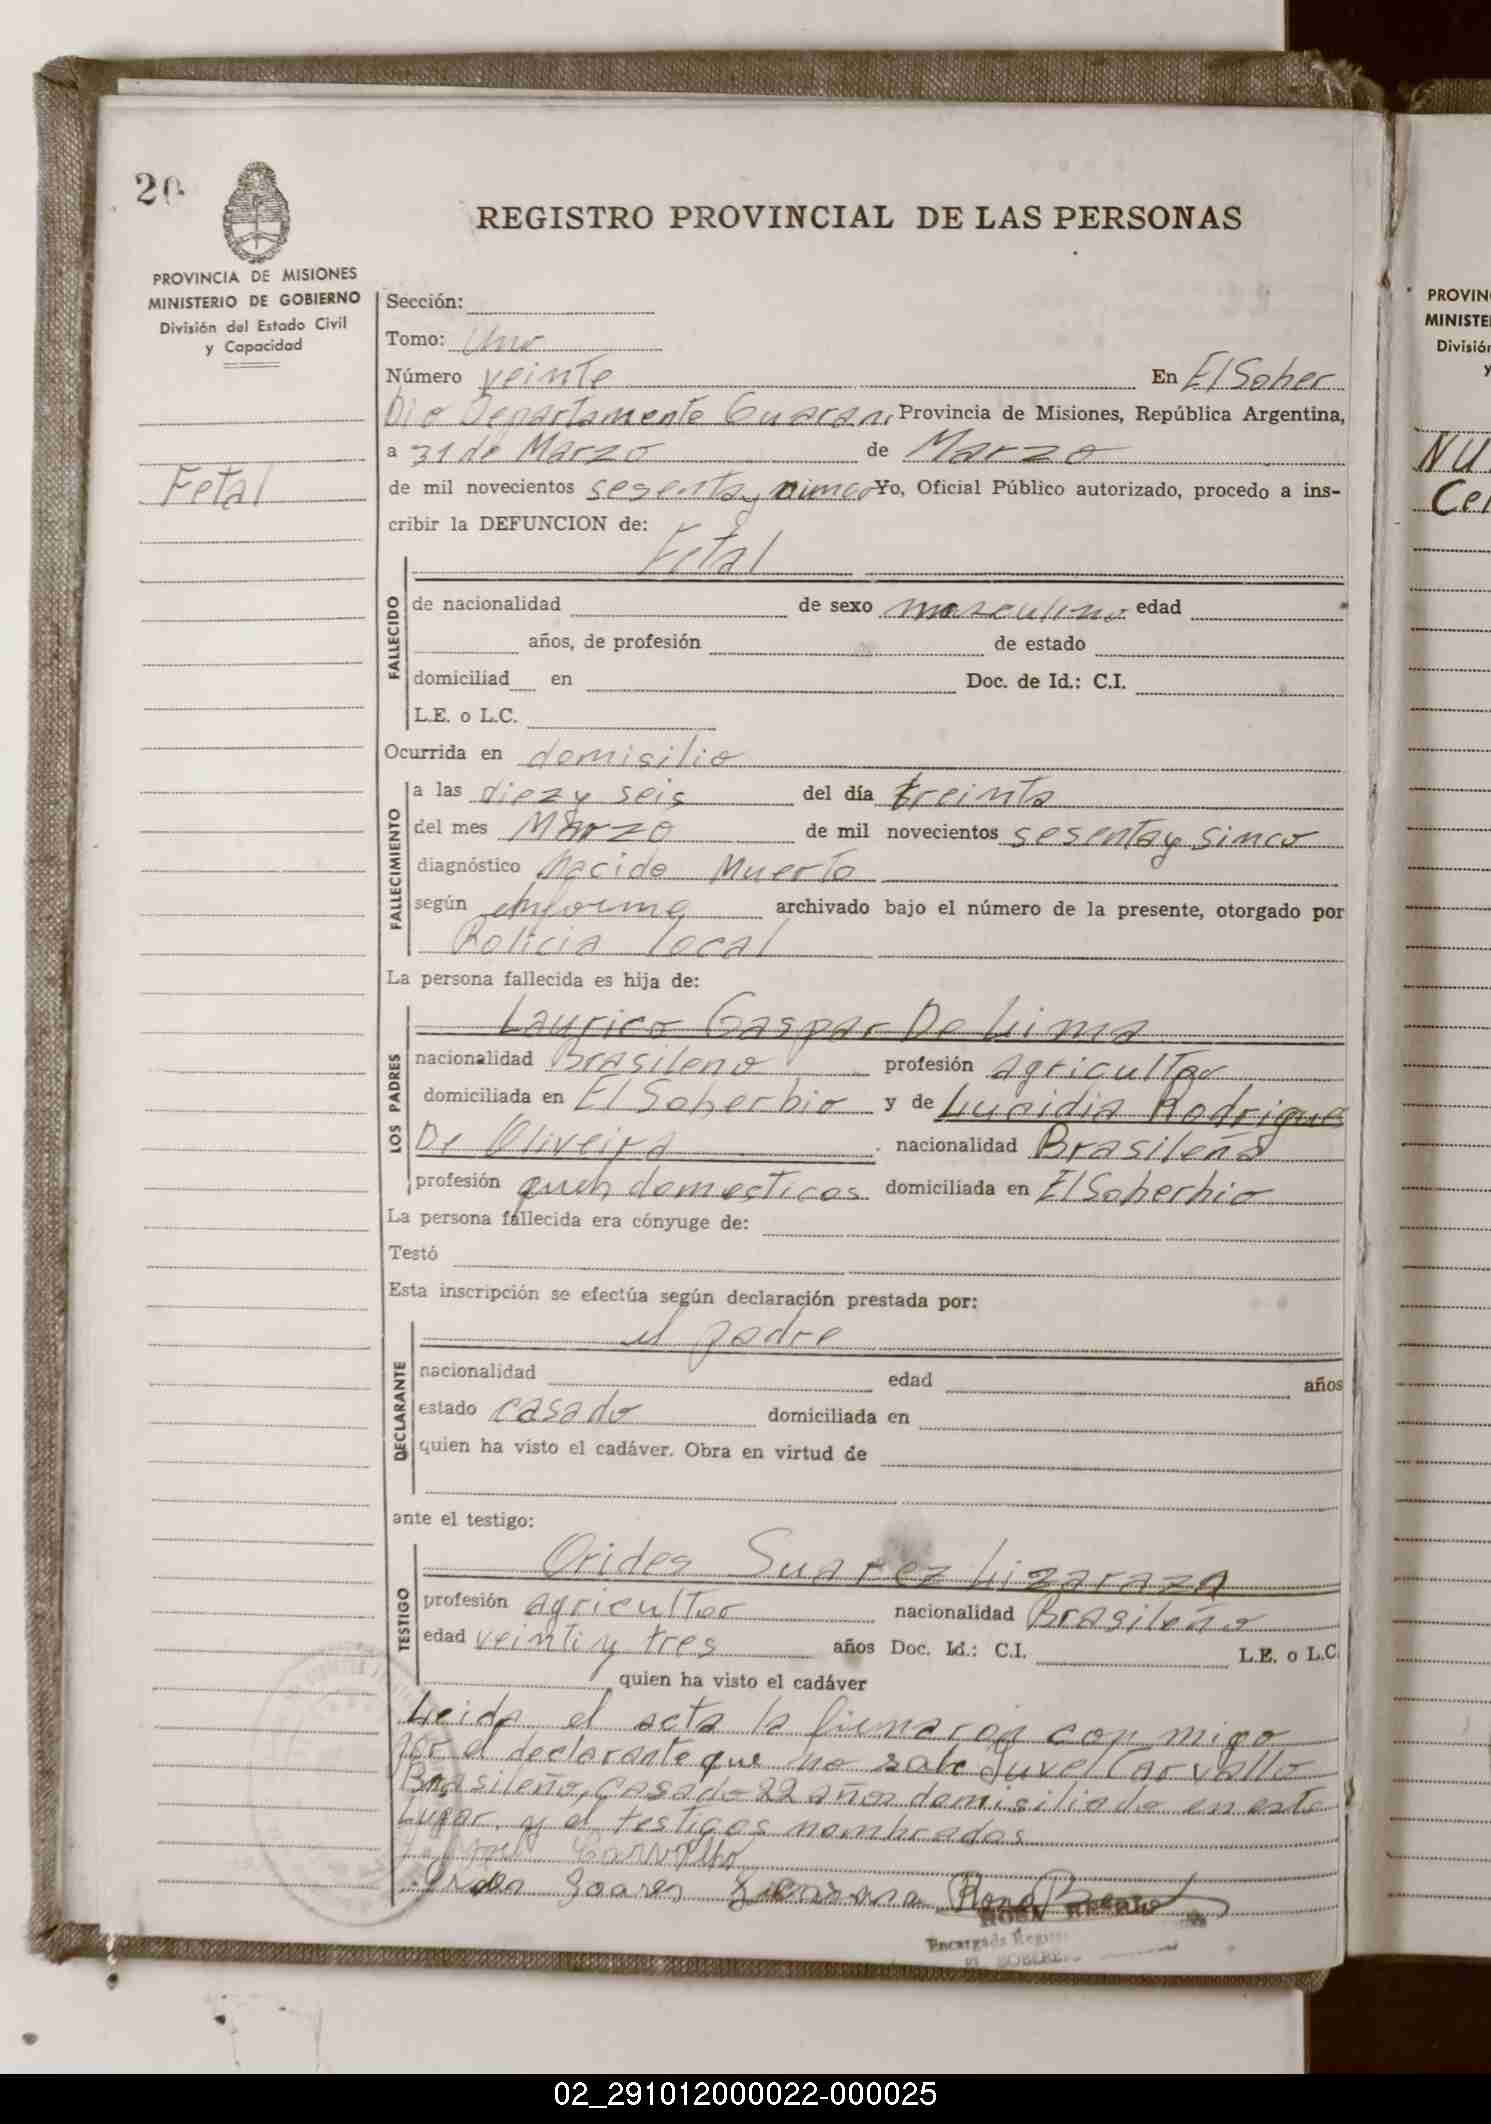 20
REGISTRO PROVINCIAL DE LAS PERSONAS
PROVINCIA DE MISIONES
MINISTERIO DE GOBIERNO
División del Estado Civil
y Capacidad
Fetal
Sección:
Tomo: Uno
Número veinte En El Sober
bio Departamento Guarani Provincia de Misiones, República Argentina,
a 31 de Marzo de Marzo
de mil novecientos sesenta y simco Yo, Oficial Público autorizado, procedo a ins-
cribir la DEFUNCION de:
Fetal
FALLECIDO
de nacionalidad de sexo masculino edad
años, de profesión de estado
domiciliad en Doc. de Id.: C.I.
L.E. o L.C.
Ocurrida en domisilio
FALLECIMIENTO
a las diez y seis del día treinta
del mes Marzo de mil novecientos sesenta y simco
diagnóstico Nacido Muerto
según imforme archivado bajo el número de la presente, otorgado por
Policia local
La persona fallecida es hija de:
LOS PADRES
Laurico Gaspar De Lima
nacionalidad Brasileno profesión agricultor
domiciliada en El Soberbio y de Lucidia Rodrigues
De Oliveira nacionalidad Brasileña
profesión queh domesticos domiciliada en El Soberbio
La persona fallecida era cónyuge de:
Testó
Esta inscripción se efectúa según declaración prestada por:
DECLARANTE
el padre
nacionalidad edad años
estado casado domiciliada en
quien ha visto el cadáver. Obra en virtud de
ante el testigo:
TESTIGO
Orides Suarez Lizaraza
profesión agricultor nacionalidad Brasileño
edad veinti y tres años Doc. Id.: C.I. L.E. o L.C.
quien ha visto el cadáver
Leida el acta la firmaron con migo
por el declarante que no sabe Juvel Carvallo
Brasileño, casado 22 años domisiliado en este
Lugar. y el testigos nombrados
Carvalho
Soares
ROSA
Encargada Regis
EL SOBERB
PROVIN
MINISTE
Divisió
y
NU
Ce
02_291012000022-000025